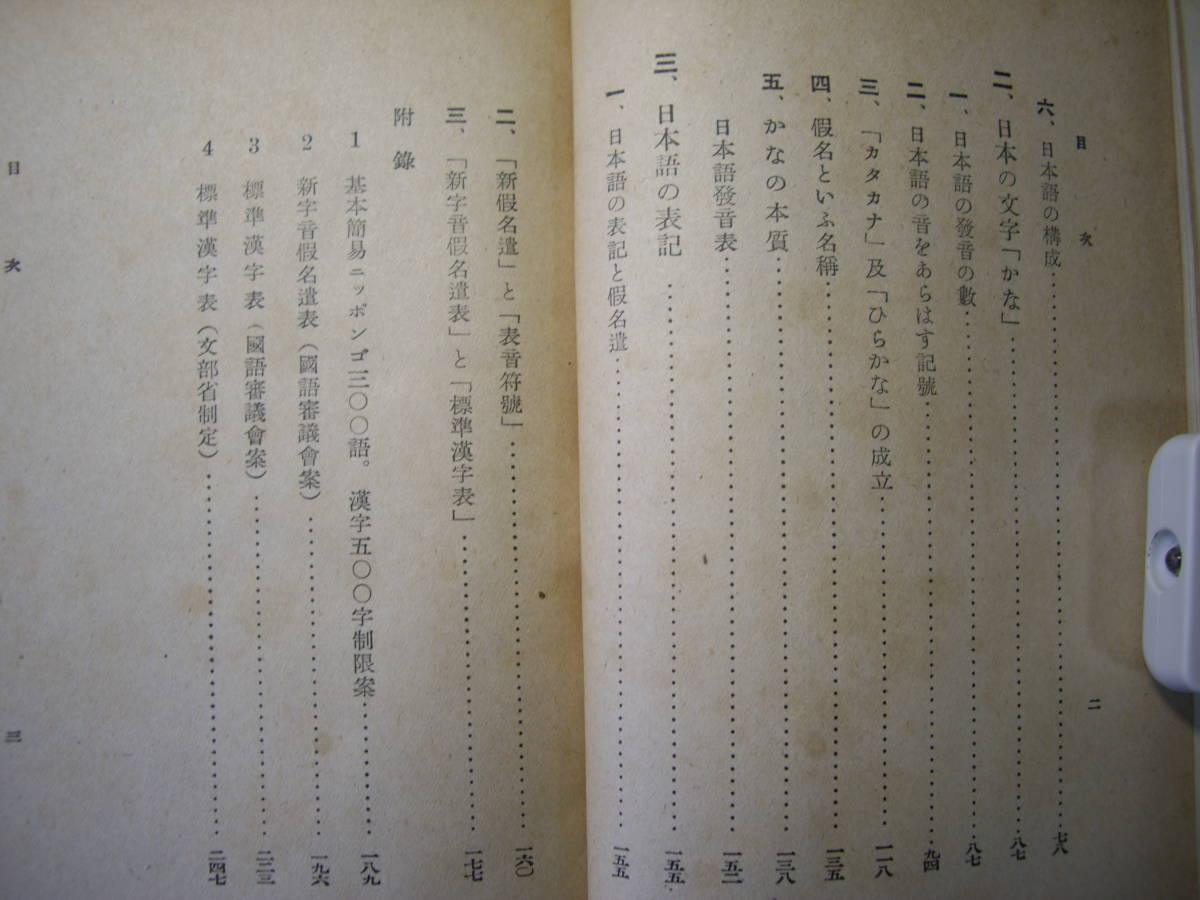 目次
六、日本語の構成……七八
二、日本の文字「かな」……八七
一、日本語の發音の數……八七
二、日本語の音をあらはす記號……九四
三、「カタカナ」及「ひらかな」の成立……一一八
四、假名といふ名稱……一三五
五、かなの本質……一三八
日本語發音表……一五二
三、日本語の表記……一五五
一、日本語の表記と假名遣……一五五
二
二、「新假名遣」と「表音符號」……一六〇
三、「新字音假名遣表」と「標準漢字表」……一七七
附錄
1 基本簡易ニッポンゴ三〇〇語。漢字五〇〇字制限案……一八九
2 新字音假名遣表（國語審議會案）……一九六
3 標準漢字表（國語審議會案）……二二三
4 標準漢字表（文部省制定）……二四七
目次
三